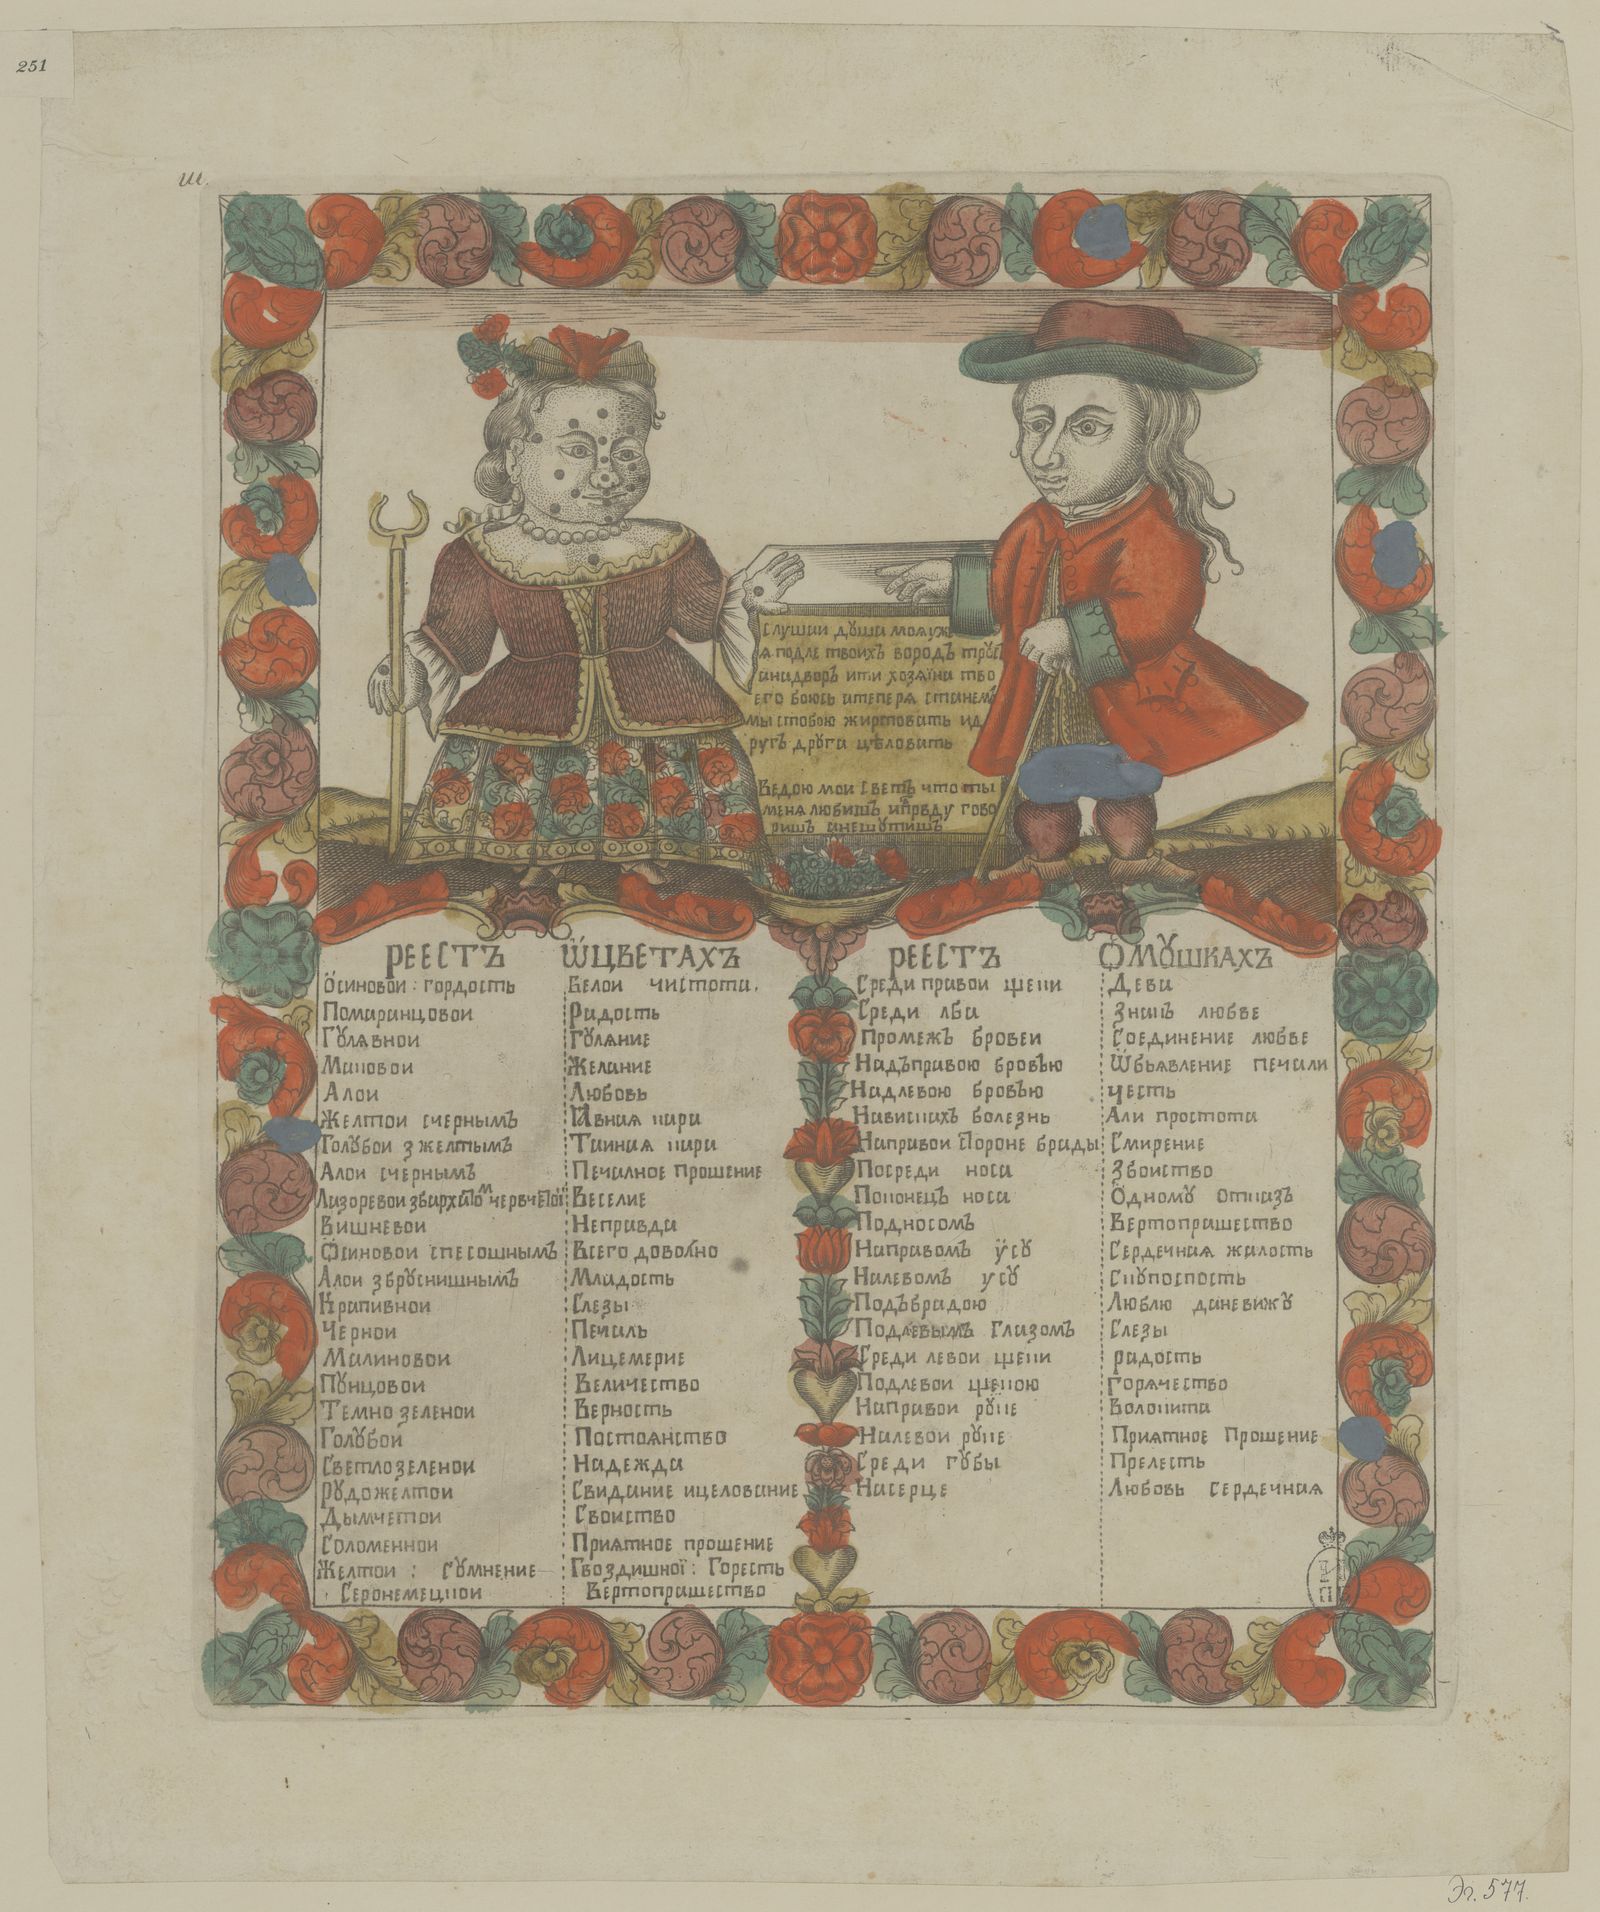 251
ш.
слушаи душа моя уже
я подле твоихъ вородъ трус
анадворъ ити хозяїна тво
его боюсь атеперя станемъ
мы стобою жировать ид
ругъ друга цѣловать
Ведою мои Светъ что ты
меня любишъ иправду гово
ришъ анешутишъ
РЕЕСТЪ ѾЦВЕТАХЪ
Осиновои : гордость Белои чистота.
Померанцовои Радость
Гулявнои Гуляние
Маковои Желание
Алои Любовь
Желтои счернымъ Явная кара
Голубои зжелтымъ Таиная кара
Алои счернымъ Печалное прошение
Лазоревои Веселие
Вишневои Неправда
Осиновои спесошнымъ Всего доволно
Алои збруснишнымъ Младость
Крапивнои Слезы
Чернои Печаль
Малиновои Лицемерие
Пунцовои Величество
Темнозеленои Верность
Голубои Постоянство
Светлозеленои Надежда
Рудожелтои Свидание ицелование
Дымчетои Своиство
Соломеннои Приятное прошение
Желтои : Сумнение Гвоздишної : Горесть
Серонемецкои Вертопрашество
РЕЕСТЪ ОМУШКАХЪ
Среди правои щеки Дева
Среди лба Знакъ любве
Промежъ бровеи Соединение любве
Надъправою бровъю Ѿбьявление печали
Надлевою бровъю Честь
Навискахъ болезнь Али простота
Направои стороне брады Смирение
Посреди носа Збоиство
Поконецъ носа Одному отказъ
Подносомъ Вертопрашество
Направомъ усу Сердечная жалость
Налевомъ усу Скупоспость
Подъбрадою Люблю даневижу
Подлевымъ глазомъ Слезы
Среди левои щеки радость
Подлевои щекою Горячество
Направои руке Волокита
Налевои руке Приятное Прошение
Среди губы Прелесть
Насерце Любовь Сердечная
Эл. 577.